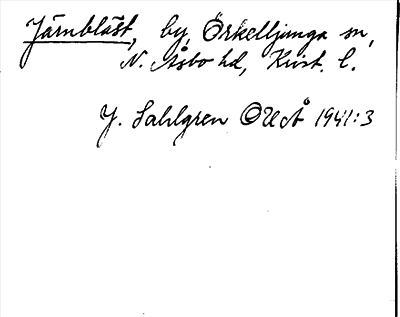 Järnbläst, by, Örkelljunga sn,
N. Åsbo hd, Krist. l.
J. Sahlgren OUÅ 1941:3